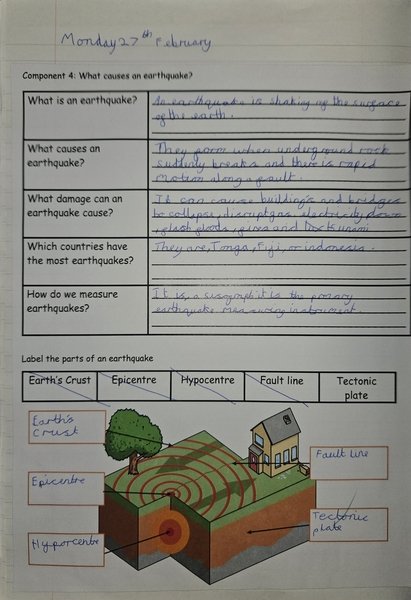 Monday 27th February
Component 4: What causes an earthquake?
What is an earthquake?
An earthquake is shaking of the surface
of the earth.
What causes an
earthquake?
They form when underground rock
suddenly breaks and there is rapid
motion along a fault.
What damage can an
earthquake cause?
It can cause buildings and bridges
to collapse, disrupt gas, electricity down
, flash floods, fires and
Which countries have
the most earthquakes?
They are, Tonga, Fiji, or indonesia.
How do we measure
earthquakes?
It is, a it is the primary
earthquake measuring instrument.
Label the parts of an earthquake
Earth's Crust
Epicentre
Hypocentre
Fault line
Tectonic
plate
Earth's
Crust
Fault line
Epicentre
Tectonic
plate
Hyporcentre